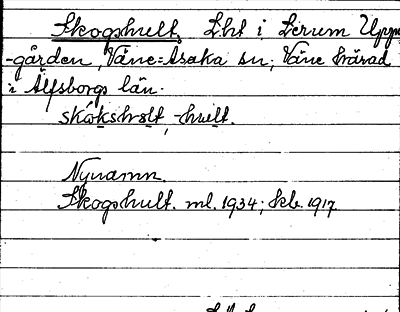 Skogshult, Lht i Lerum Upp
-gården, Väne=Åsaka sn; Väne härad
i Älfsborgs län.
skókshslt, -hult.
Nynamn.
Skogshult. ml. 1934; kb. 1917